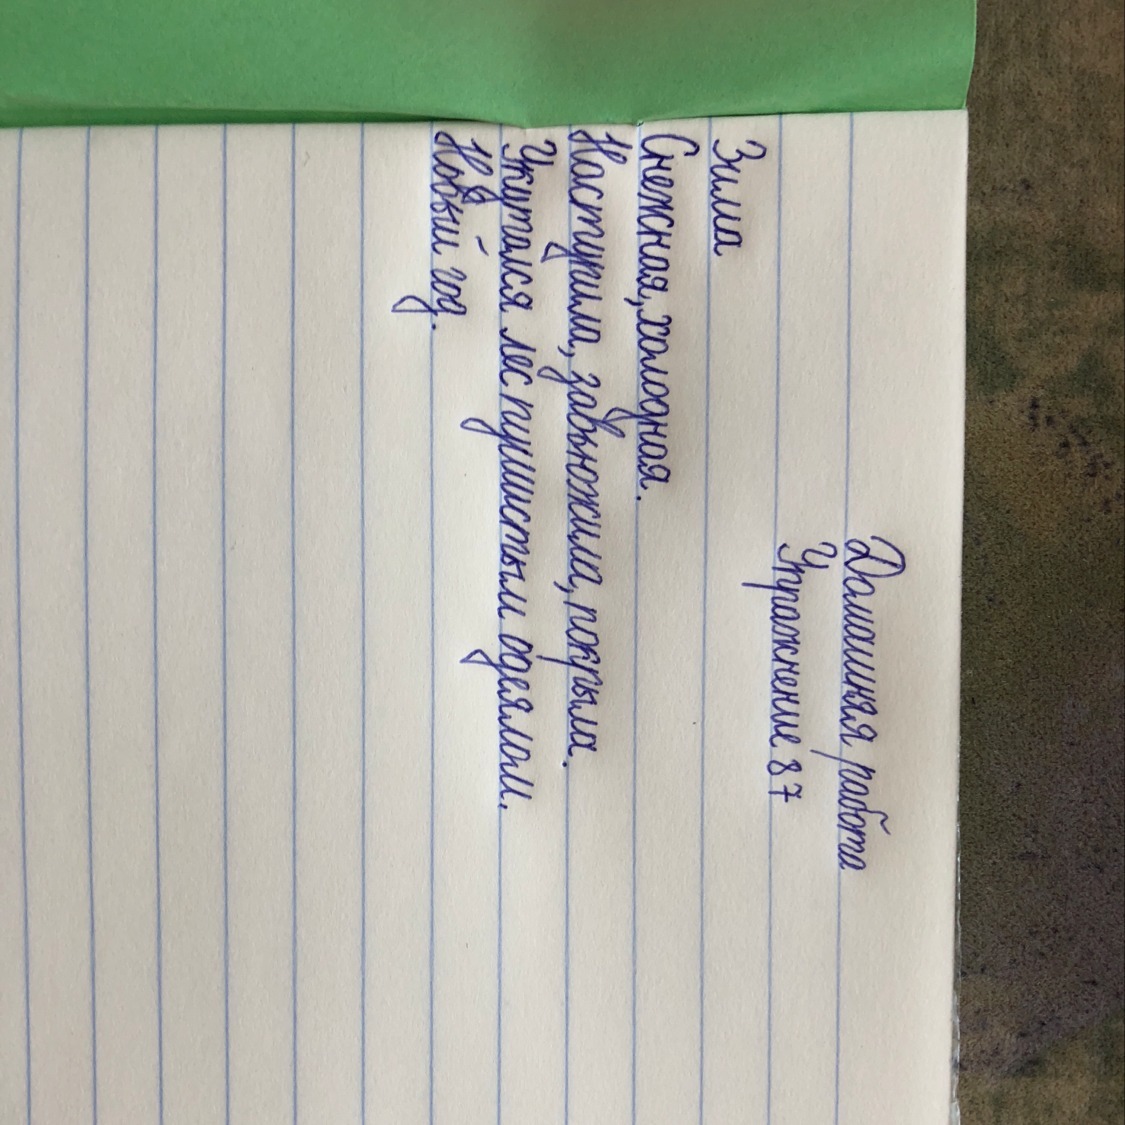 Домашняя работа
Упражнение 87
Зима
Снежная, холодная.
Наступила, завьюжила, покрыла.
Укутался лес пушистым одеялом.
Новый год.